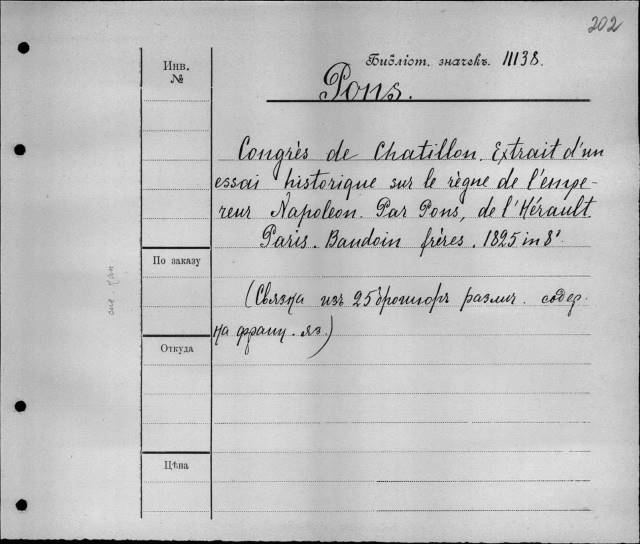 202
Библіот. значекъ. 11138.
Инв.
№
Pons.
Congrès de Chatillon. Extrait d'un
essai historique sur le règne de l'empe-
reur Napoleon. Par Pons, de l'Hérault
Paris. Baudoin frères. 1825 in 8°.
По заказу
(Связка изъ 25 брошюръ различ. содер.
на франц. яз.)
Откуда
Цѣна